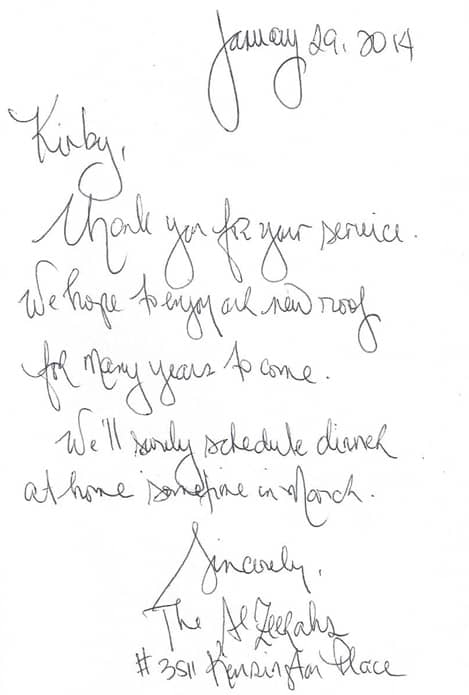 January 29, 2014
Kirby,
Thank you for your service.
We hope to enjoy our new roof
for many years to come.
We'll surely schedule dinner
at home sometime in March.
Sincerely,
The Al
#3511 Kensington Place